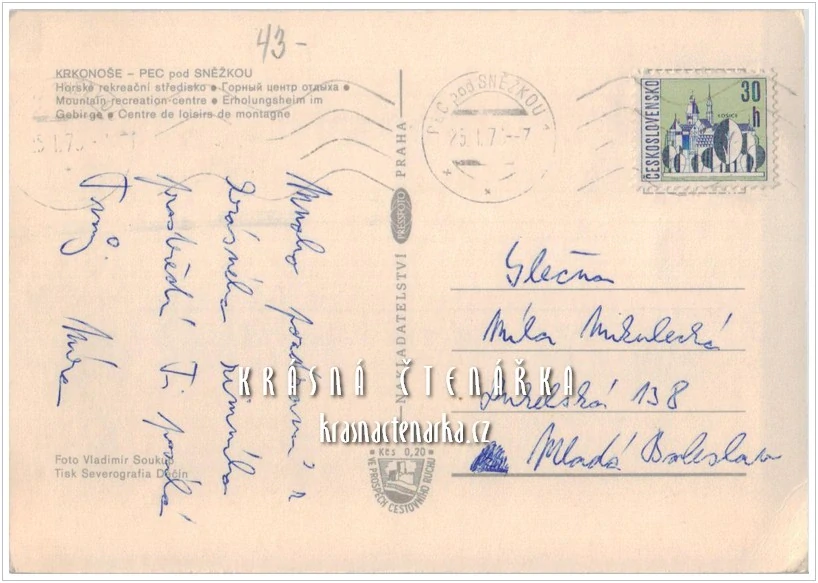 43-
KRKONOŠE – PEC pod SNĚŽKOU
Horské rekreační středisko • Горный центр отдыха •
Mountain recreation centre • Erholungsheim im
Gebirge • Centre de loisirs de montagne
PEC pod SNĚŽKOU 1
25.1.7 -7
ČESKOSLOVENSKO
30 h
KOŠICE
NAKLADATELSTVÍ PRESSFOTO PRAHA
Mnoho pozdravů z
krásného zimního
prostředí Ti posílá
Tvůj Míra
Slečna
Míla Mikulecká
138
Mladá Boleslav
KRÁSNÁ ČTENÁŘKA
krasnactenarka.cz
Foto Vladimír Soukup
Tisk Severografia Děčín
Kčs 0,20
VE PROSPĚCH CESTOVNÍHO RUCHU